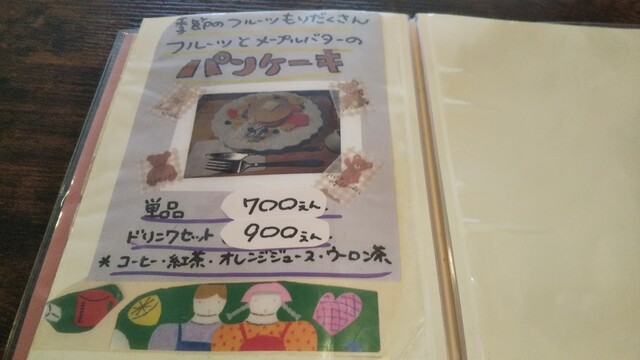 季節のフルーツもりだくさん
フルーツとメープルバターの
パンケーキ
単品 700えん
ドリンクセット 900えん
*コーヒー・紅茶・オレンジジュース・ウーロン茶